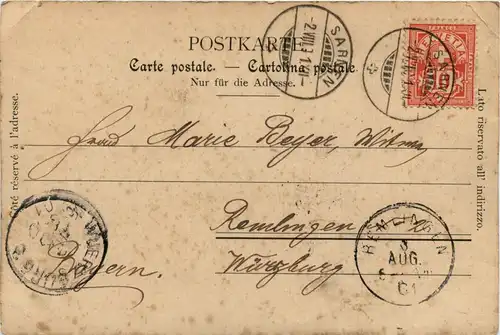 POSTKARTE.
Carte postale. — Cartolina postale.
Nur für die Adresse.
Côté réservé à l'adresse.
Lato riservato all' indirizzo.
SARNEN
HELVETIA
10
Frau Marie Beyer, Witwe
Remlingen
Würzburg
Bayern.
REMLINGEN
3
AUG.
01
WUERZBURG